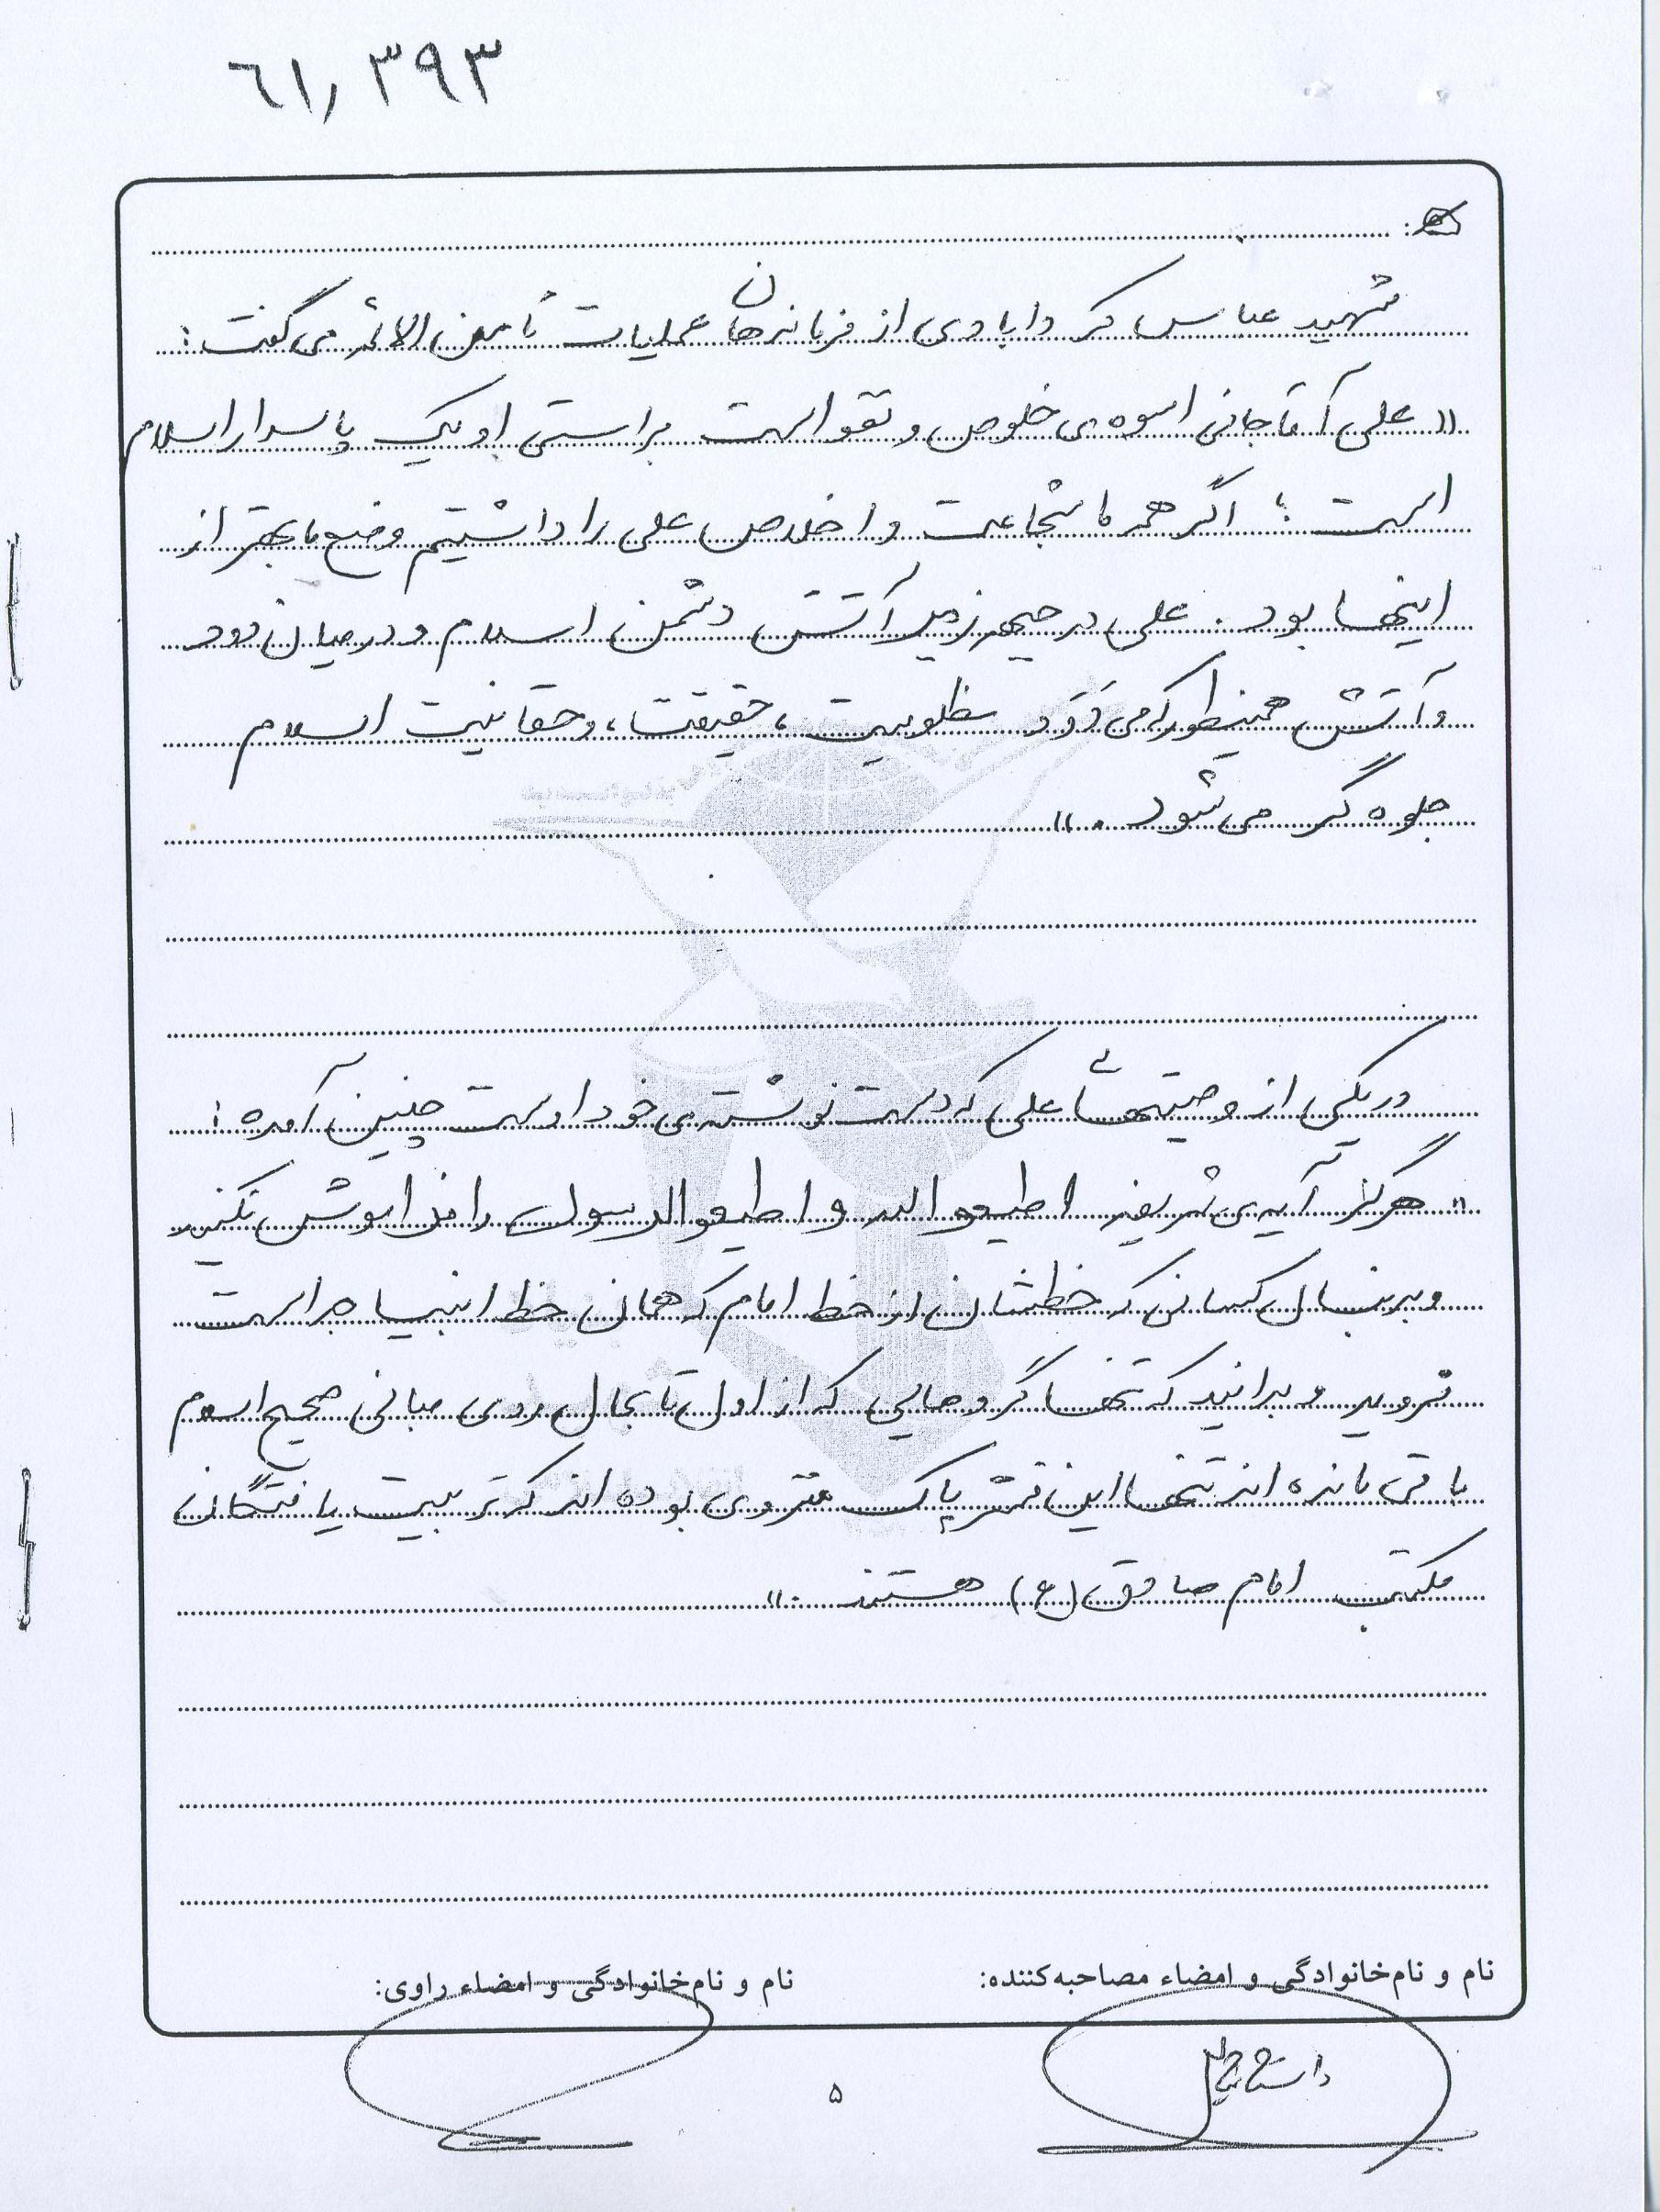 ٦١٫٣٩٣
شهید عباس کردآبادی از فرماندهان عملیات ثامن الائمه می گفت:
"علی آقاجانی اسوه ی خلوص و تقواست براستی او یک پاسدار اسلام
است؛ اگر همه ما شجاعت و اخلاص علی را داشتیم وضع ما بهتر از
اینها بود. علی در جبهه زیر آتش دشمن اسلام و در میان دود
و آتش همینطور که می رَوَد مظلومیت، حقیقت، و حقانیت اسلام
جلوه گر می شود."
در یکی از وصیتهای علی که دست نوشته ی خود اوست چنین آمده:
"هرگز آیه ی شریفه اطیعو الله و اطیعو الرسول را فراموش نکنید
و بدنبال کسانی که خطشان از خط امام که همان خط انبیا جداست
نروید و بدانید که تنها گروهایی که از اول تا بحال روی مبانی صحیح اسلام
باقی مانده اند تنها این قشر پاک بوده اند که تربیت یافتگان
مکتب امام صادق (ع) هستند."
نام و نام‌خانوادگی و امضاء مصاحبه‌کننده:
نام و نام‌خانوادگی و امضاء راوی:
۵